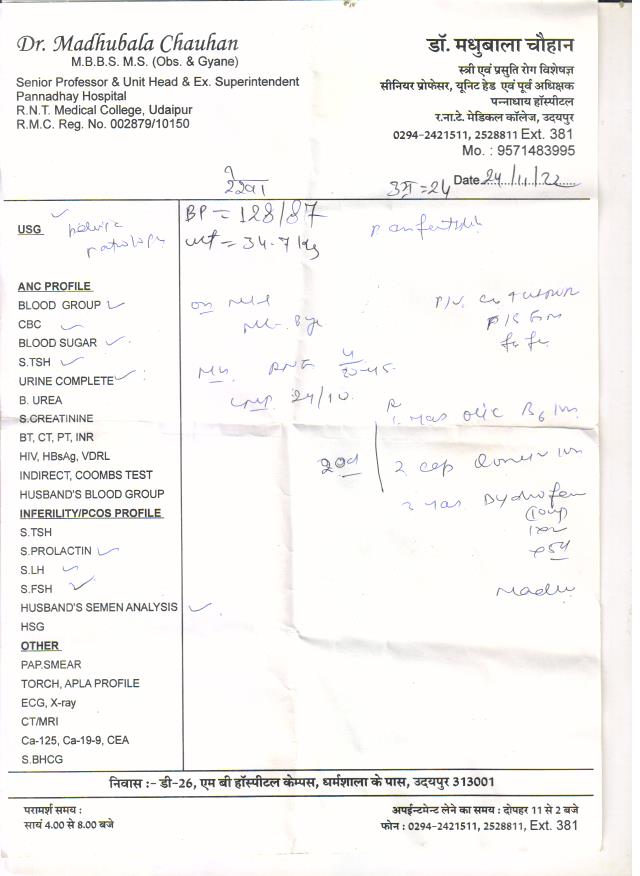 Dr. Madhubala Chauhan
M.B.B.S. M.S. (Obs. & Gyane)
Senior Professor & Unit Head & Ex. Superintendent
Pannadhay Hospital
R.N.T. Medical College, Udaipur
R.M.C. Reg. No. 002879/10150
डॉ. मधुबाला चौहान
स्त्री एवं प्रसुति रोग विशेषज्ञ
सीनियर प्रोफेसर, यूनिट हेड एवं पूर्व अधिक्षक
पन्नाधाय हॉस्पीटल
र.ना.टे. मेडिकल कॉलेज, उदयपुर
0294-2421511, 2528811 Ext. 381
Mo. : 9571483995
उम्र = 24 Date 24/11/22
USG pelvic
BP = 128/87
wt = 34.7 kg
ANC PROFILE
BLOOD GROUP
CBC
BLOOD SUGAR
S.TSH
URINE COMPLETE
B. UREA
S.CREATININE
BT, CT, PT, INR
HIV, HBsAg, VDRL
INDIRECT, COOMBS TEST
HUSBAND'S BLOOD GROUP
INFERILITY/PCOS PROFILE
S.TSH
S.PROLACTIN
S.LH
S.FSH
HUSBAND'S SEMEN ANALYSIS
HSG
OTHER
PAP.SMEAR
TORCH, APLA PROFILE
ECG, X-ray
CT/MRI
Ca-125, Ca-19-9, CEA
S.BHCG
LMP 24/10
निवास :- डी-26, एम बी हॉस्पीटल केम्पस, धर्मशाला के पास, उदयपुर 313001
परामर्श समय :
सायं 4.00 से 8.00 बजे
अपईन्टमेन्ट लेने का समय : दोपहर 11 से 2 बजे
फोन : 0294-2421511, 2528811, Ext. 381